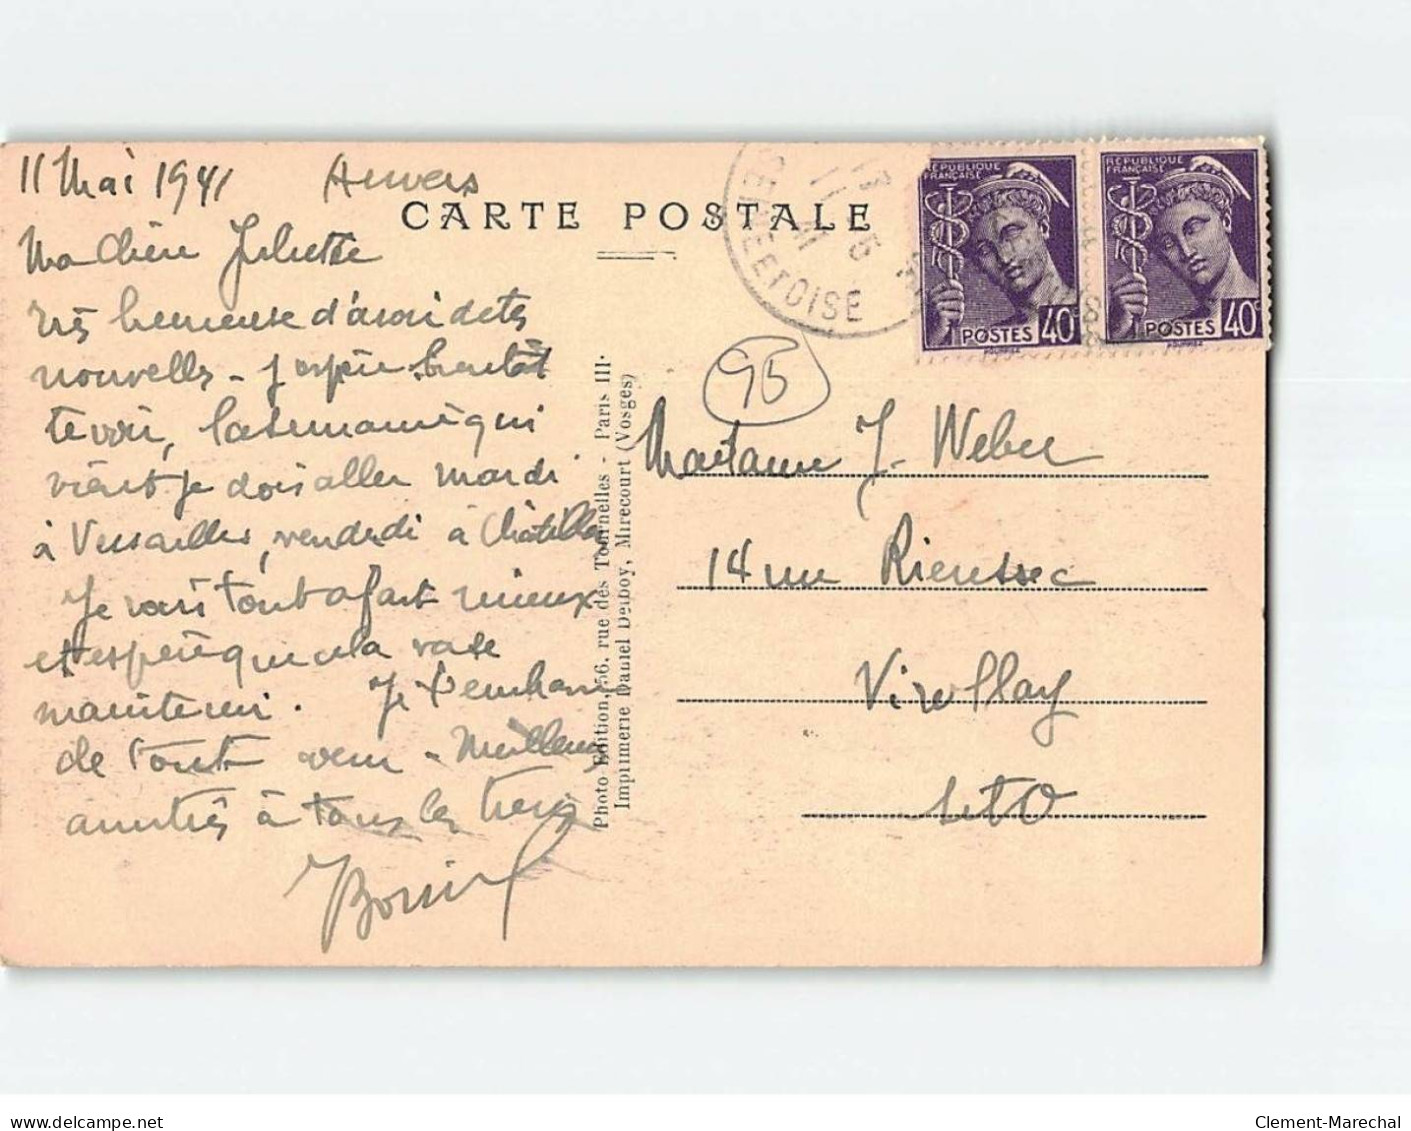 11 Mai 1941 Auvers
CARTE POSTALE
Ma chère Juliette
très heureuse d'avoir de tes
nouvelles - j'espère bientôt
te voir, la semaine qui
vient je dois aller mardi
à Versailles, vendredi à Châtillon
Je vais tout à fait mieux
et espère que cela va se
maintenir. Je t'embrasse
de tout cœur - Meilleures
amitiés à tous les trois
SEINE ET OISE
11 5
41
RÉPUBLIQUE
FRANÇAISE
POSTES 40c
RÉPUBLIQUE
FRANÇAISE
POSTES 40c
95
Photo Edition, 56, rue des Tournelles - Paris III.
Imprimerie Daniel Delboy, Mirecourt (Vosges)
Madame J. Weber
14 rue Rieussec
Viroflay
S et O
Clement-Marechal
www.delcampe.net